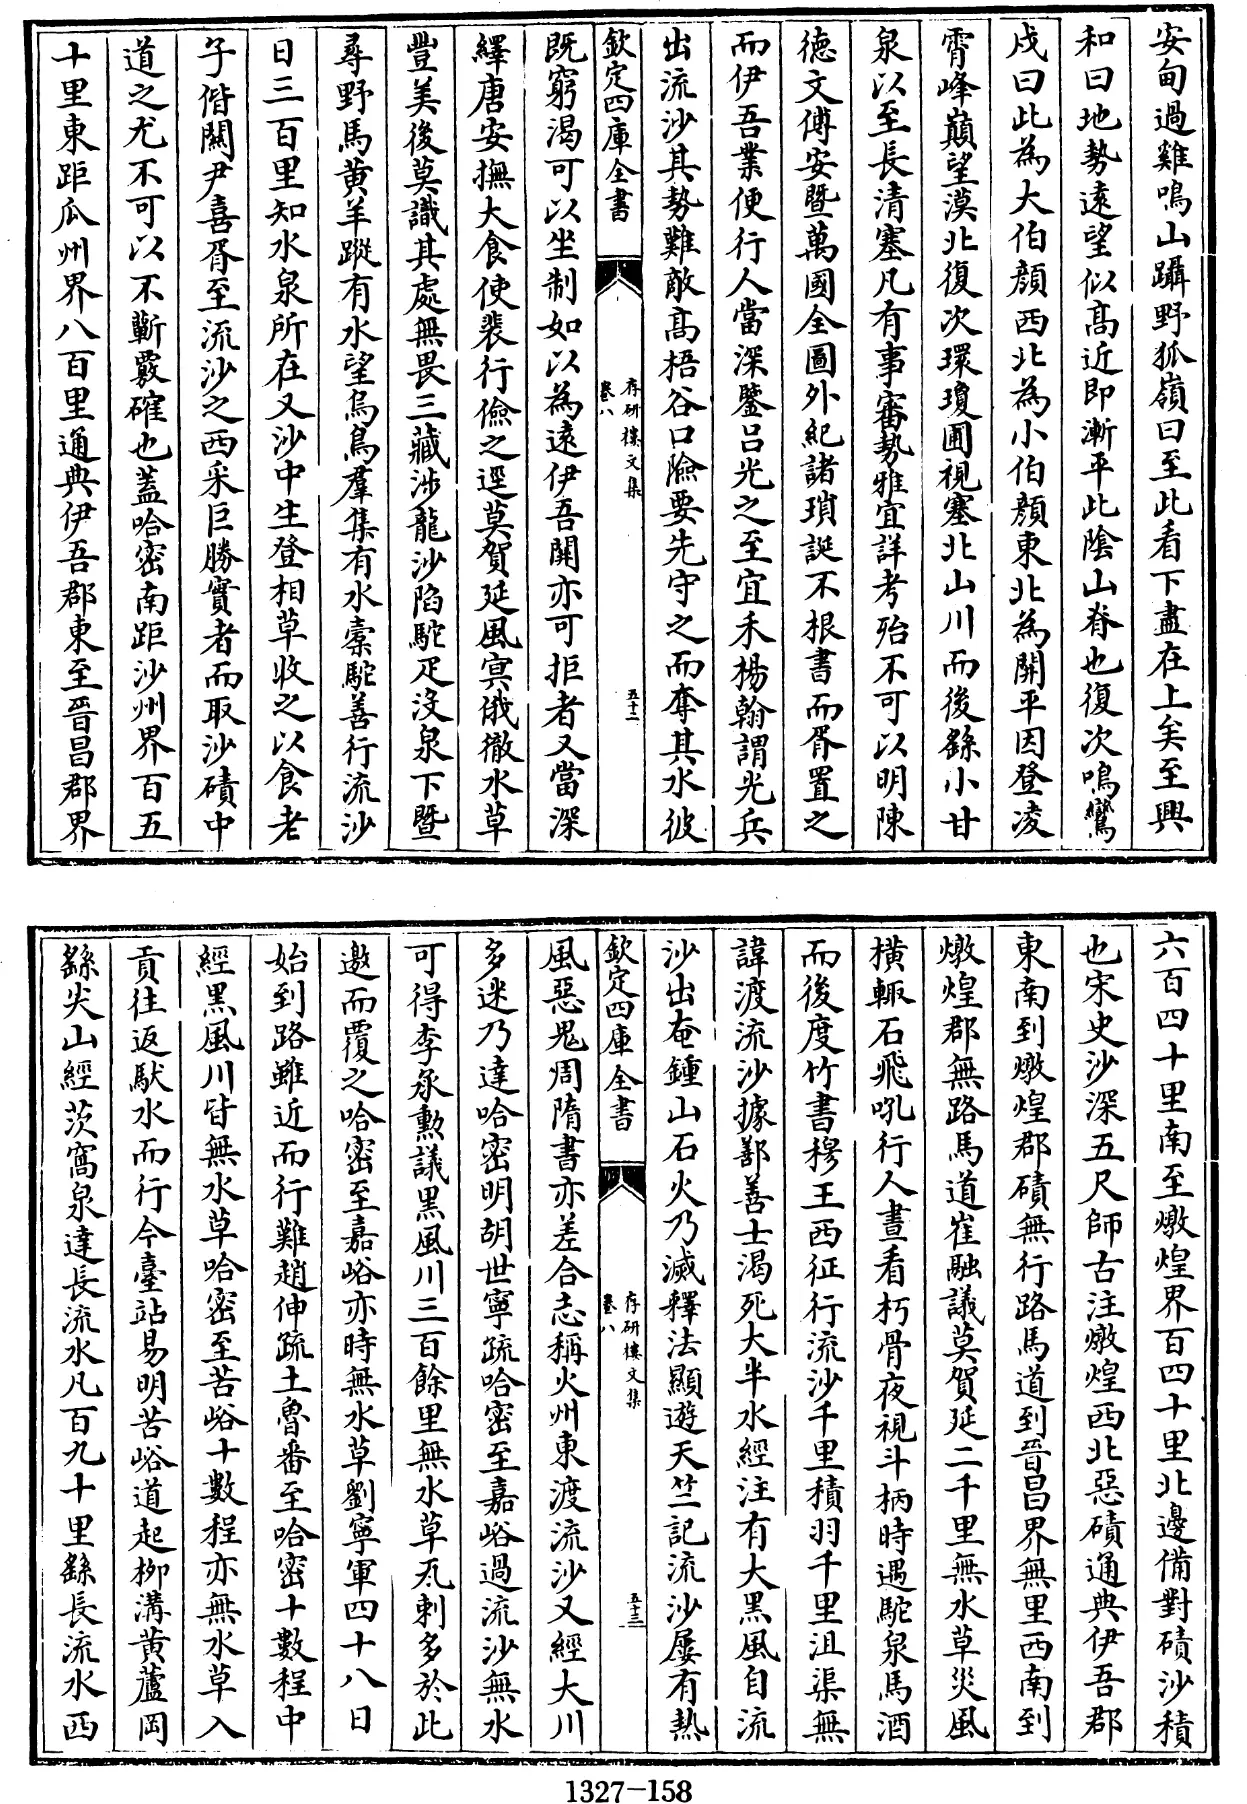 安甸過雞鳴山躡野狐嶺曰至此看下盡在上矣至興
和曰地勢逺望似髙近即漸平此陰山脊也復次鳴鸞
戍曰此為大伯顔西北為小伯顔東北為開平因登凌
霄峰巔望漠北復次環瓊圃視塞北山川而後繇小甘
泉以至長清塞凡有事審勢雅宜詳考殆不可以明陳
德文傅安暨萬國全圖外紀諸瑣誕不根書而胥置之
而伊吾業便行人當深鑒吕光之至宜禾楊翰謂光兵
出流沙其勢難敵髙梧谷口險要先守之而奪其水彼
欽定四庫全書
存研樓文集
卷八
五十二
既窮渴可以坐制如以為逺伊吾關亦可拒者又當深
繹唐安撫大食使裴行儉之逕莫賀延風㝠俄徹水草
豐美後莫識其處無畏三藏涉龍沙陷駝足没泉下暨
尋野馬黄羊蹤有水望烏鳥羣集有水橐駝善行流沙
日三百里知水泉所在又沙中生登相草收之以食老
子偕關尹喜胥至流沙之西采巨勝實者而取沙磧中
道之尤不可以不蘄覈確也葢哈宻南距沙州界百五
十里東距瓜州界八百里通典伊吾郡東至晉昌郡界
六百四十里南至燉煌界百四十里北邊備對磧沙積
也宋史沙深五尺師古注燉煌西北惡磧通典伊吾郡
東南到燉煌郡磧無行路馬道到晉昌界無里西南到
燉煌郡無路馬道崔融議莫賀延二千里無水草災風
横輙石飛吼行人晝看朽骨夜視斗柄時遇駝泉馬酒
而後度竹書穆王西征行流沙千里積羽千里沮渠無
諱渡流沙據鄯善士渴死大半水經注有大黒風自流
沙出奄鍾山石火乃滅釋法顯遊天竺記流沙屢有熱
欽定四庫全書
存研樓文集
卷八
五十三
風惡鬼周隋書亦差合志稱火州東渡流沙又經大川
多迷乃達哈宻明胡世寧疏哈宻至嘉峪過流沙無水
可得李承勲議黒風川三百餘里無水草瓦剌多於此
邀而覆之哈宻至嘉峪亦時無水草劉寧軍四十八日
始到路雖近而行難趙伸疏土魯番至哈宻十數程中
經黒風川皆無水草哈宻至苦峪十數程亦無水草入
貢往返馱水而行今臺站易明苦峪道起栁溝黄蘆岡
繇尖山經茨窩泉達長流水凡百九十里繇長流水西
1327-158